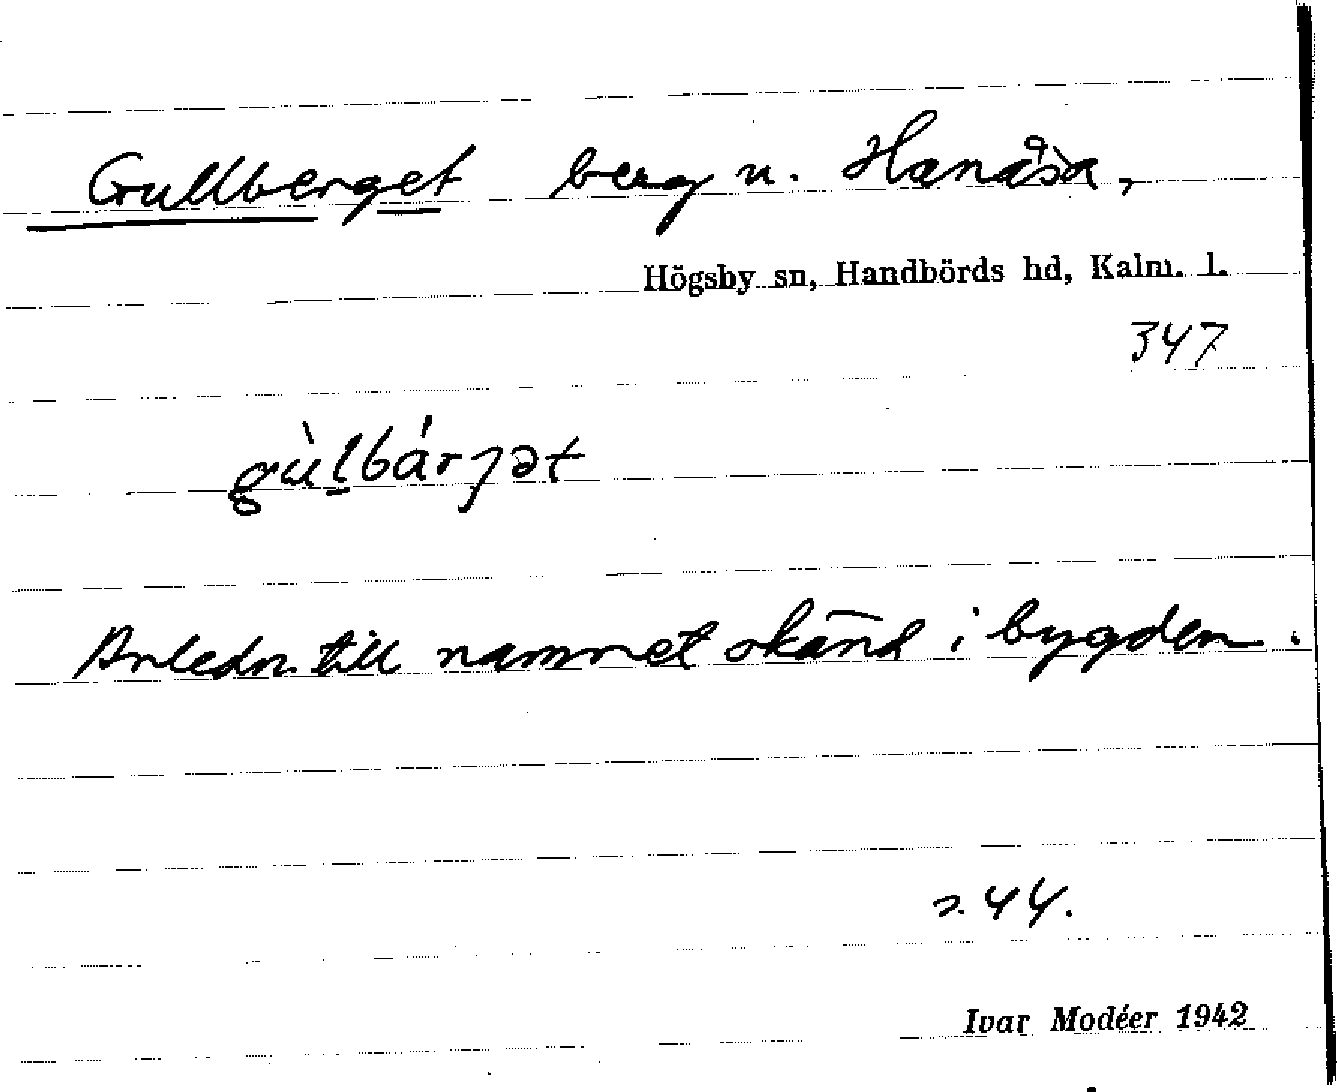 Gullberget berg u. Hanåsa,
Högsby sn, Handbörds hd, Kalm. l.
347
gùlbárjət
Anledn. till namnet okänd i bygden.
s. 44.
Ivar Modéer 1942